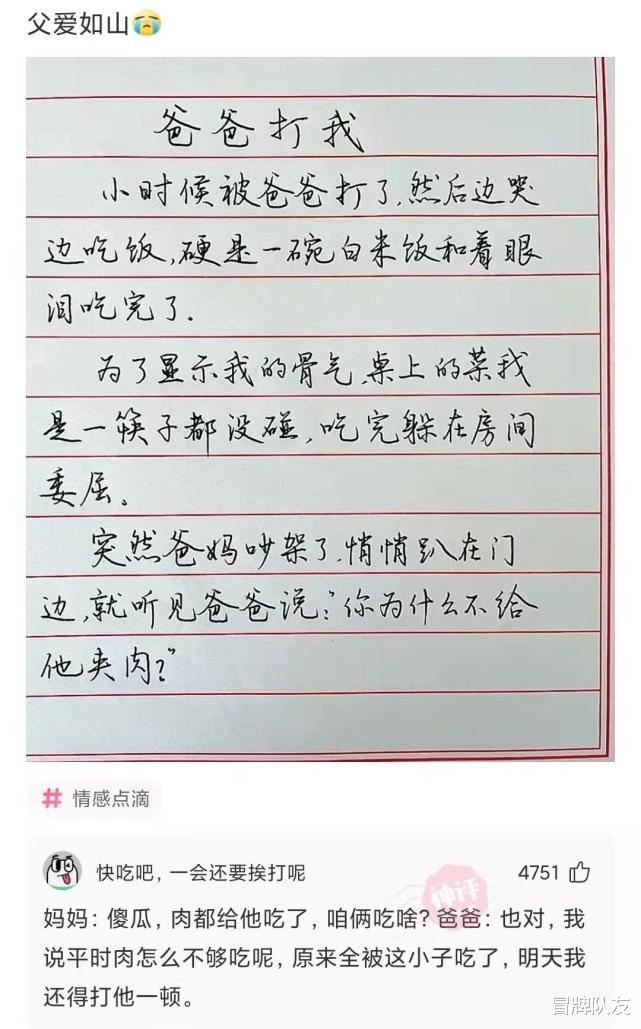 父爱如山😭
爸爸打我
小时候被爸爸打了,然后边哭
边吃饭,硬是一碗白米饭和着眼
泪吃完了.
为了显示我的骨气,桌上的菜我
是一筷子都没碰,吃完躲在房间
委屈。
突然爸妈吵架了,悄悄趴在门
边,就听见爸爸说:"你为什么不给
他夹肉?"
# 情感点滴
快吃吧，一会还要挨打呢 4751
神评
妈妈：傻瓜，肉都给他吃了，咱俩吃啥？爸爸：也对，我
说平时肉怎么不够吃呢，原来全被这小子吃了，明天我
还得打他一顿。
冒牌队友